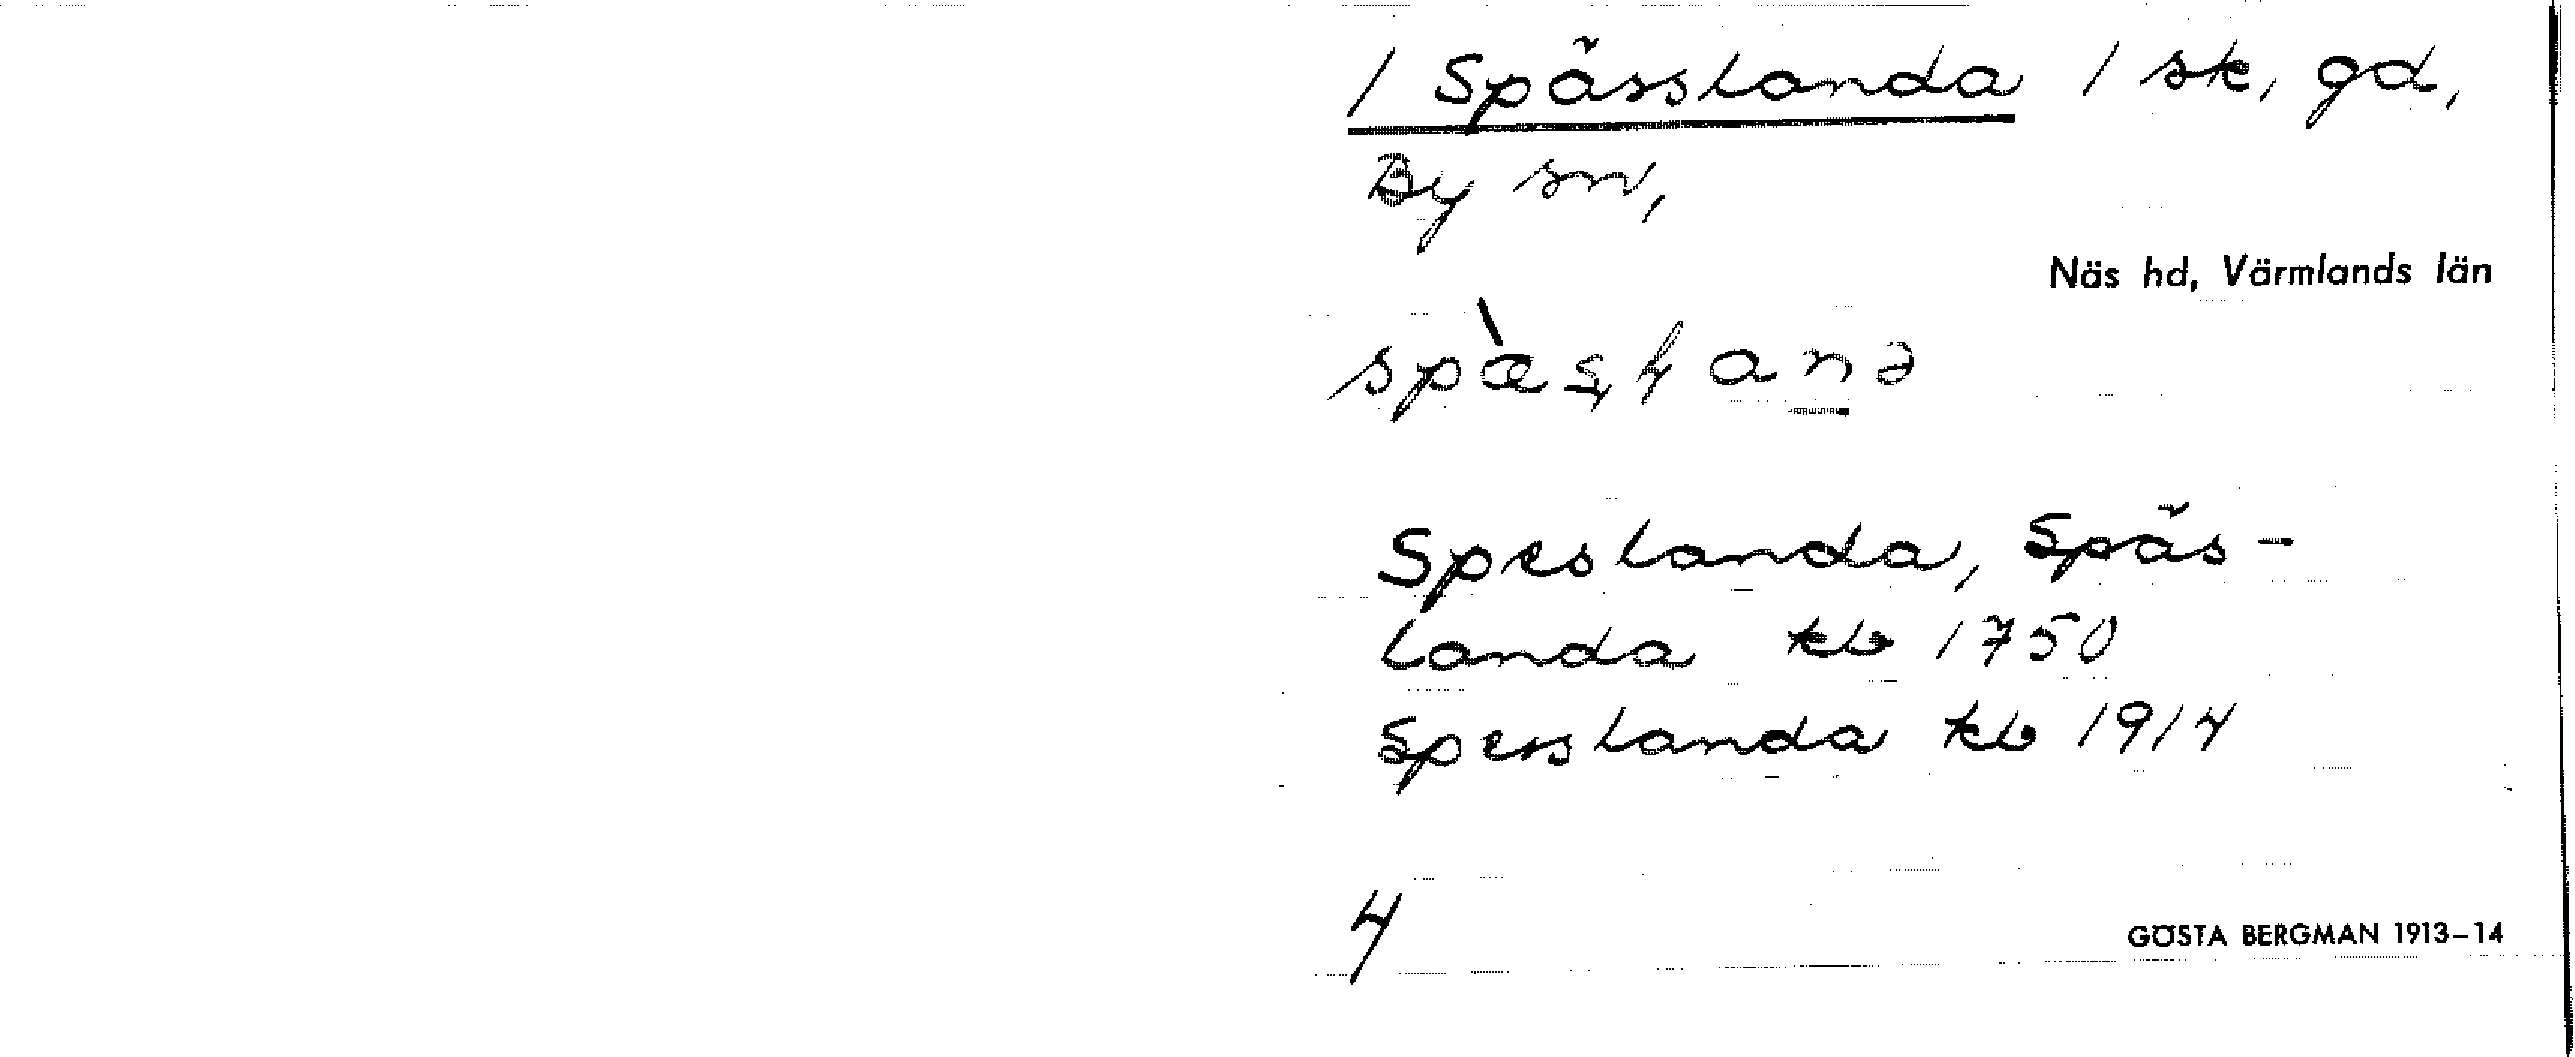 / Spässlanda / sk, gd,
By sn,
Näs hd, Värmlands län
Speslanda, Späs-
landa kb 1750
Spesslanda kb 1914
4
GÖSTA BERGMAN 1913–14